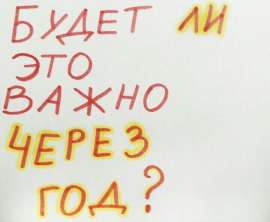 БУДЕТ ЛИ
ЭТО
ВАЖНО
ЧЕРЕЗ
ГОД?